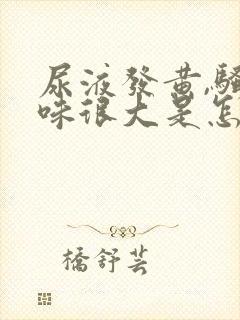 尿液發黃,騷
味很大是怎
橋舒芸